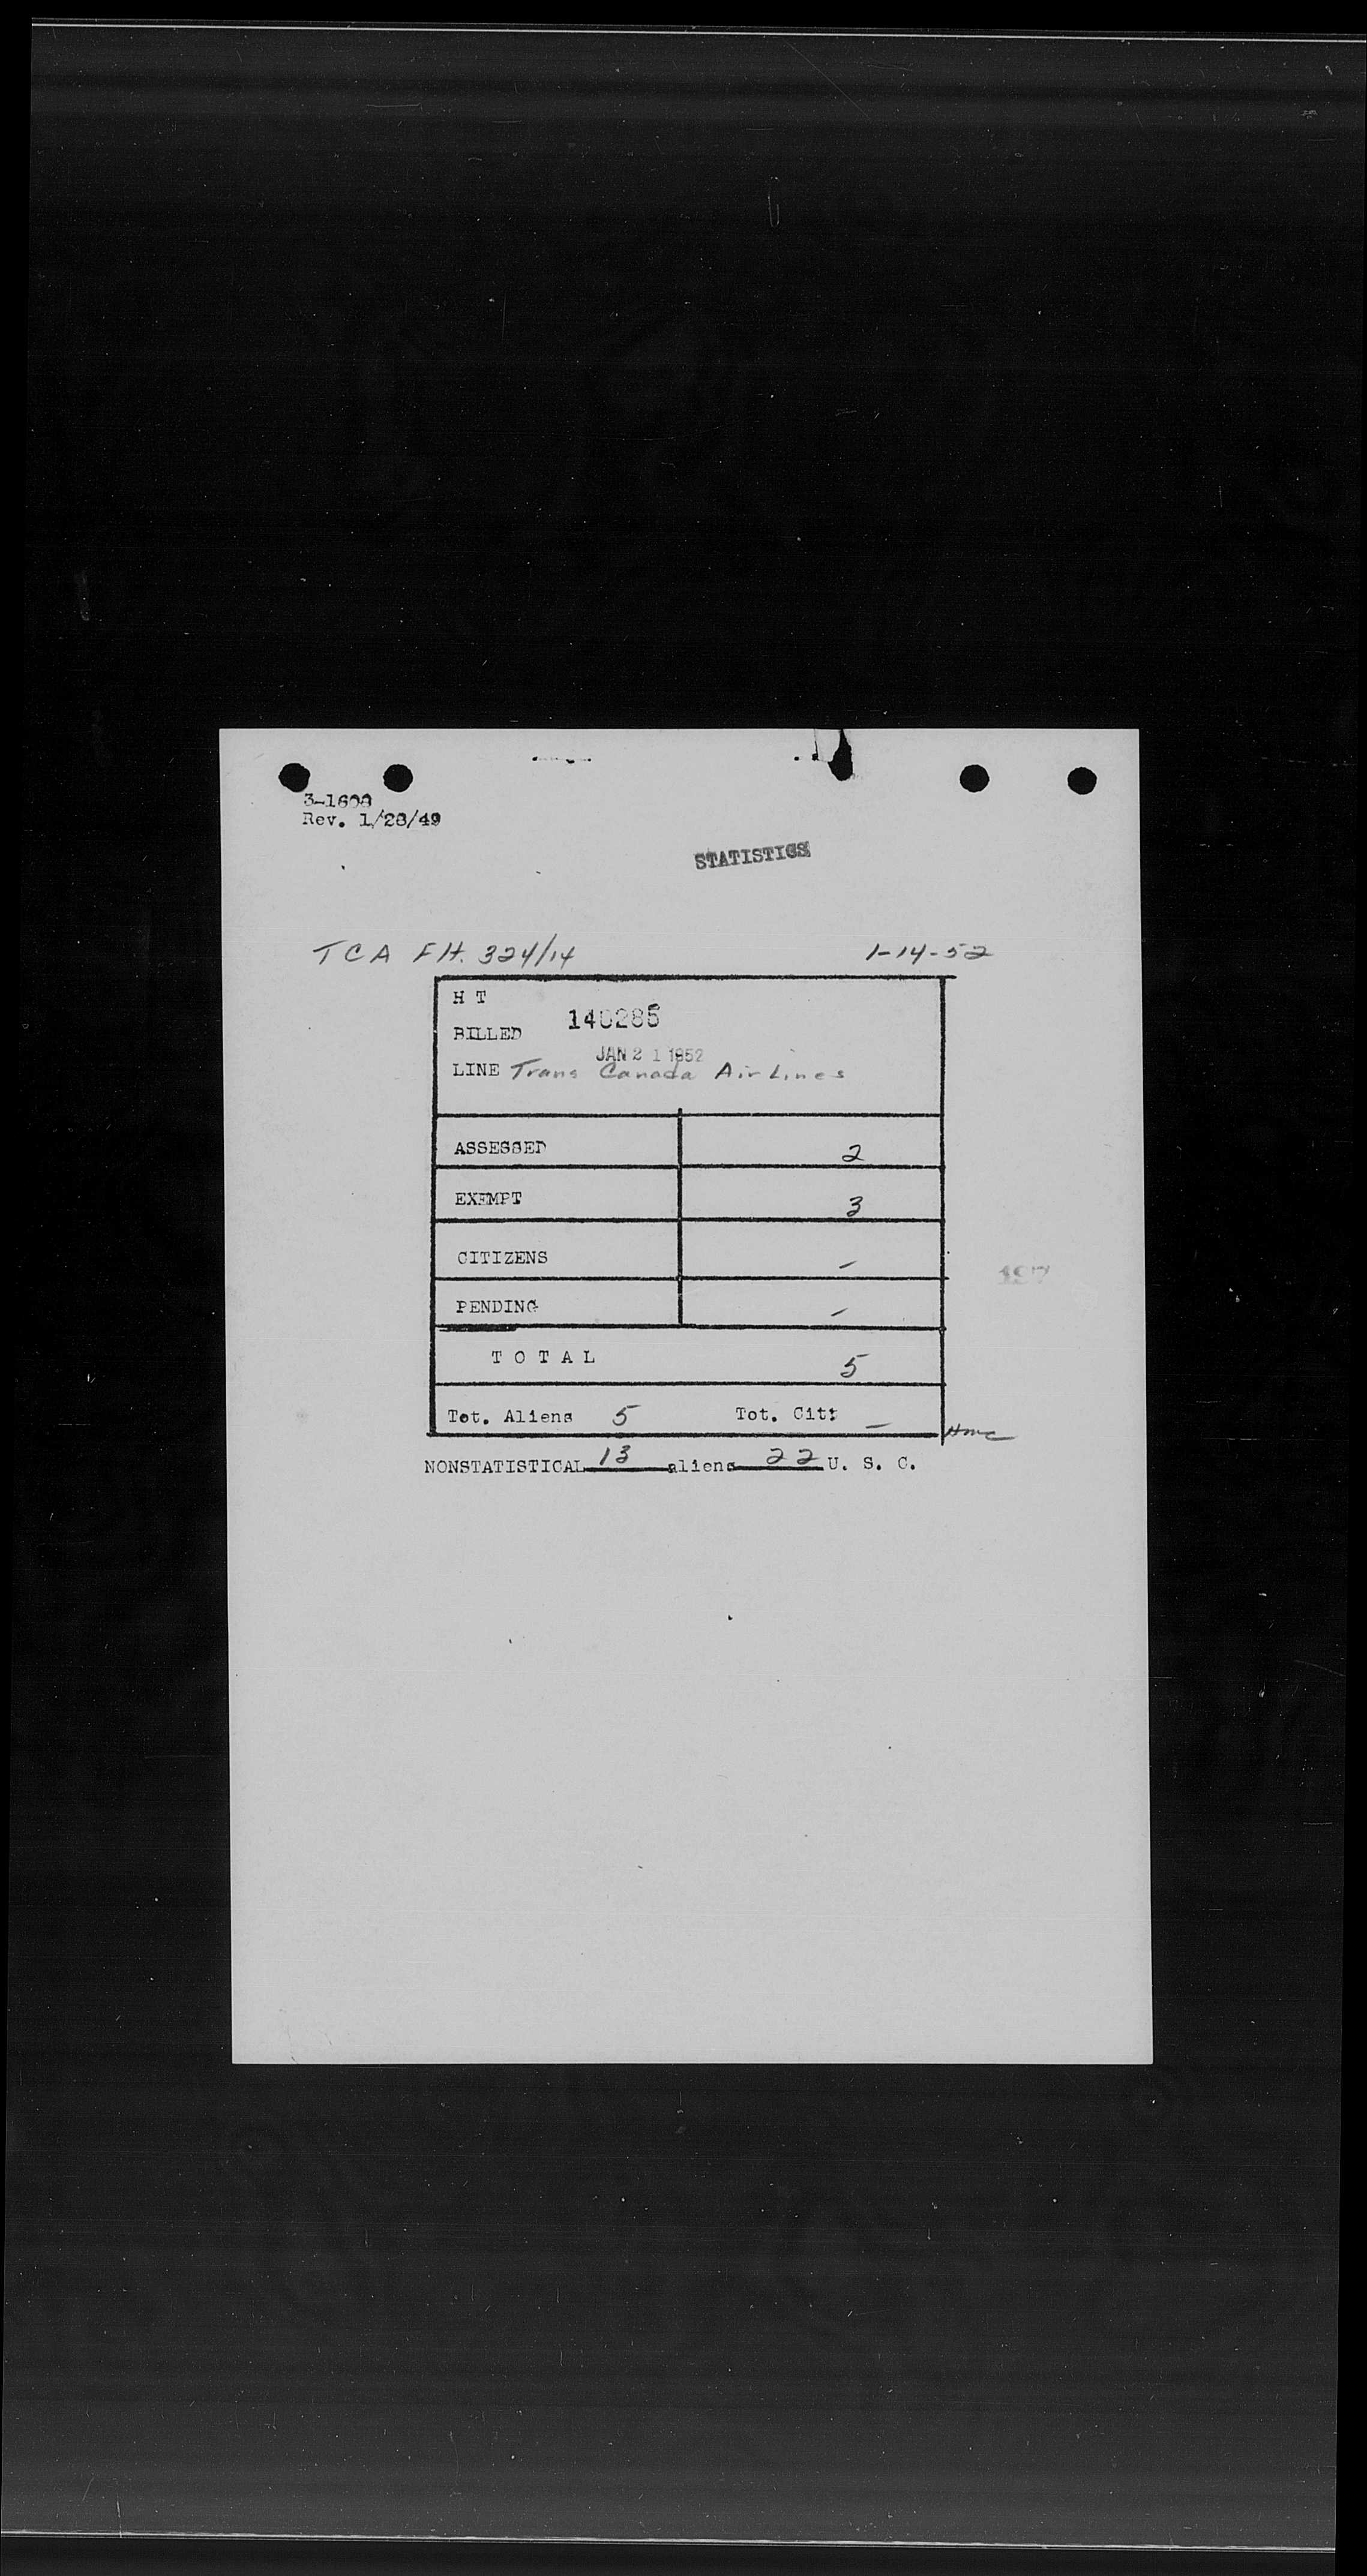 3-1608
Rev. 1/28/49
STATISTICS
TCA Flt. 324/14 1-14-52
H T
BILLED 140285
JAN 21 1952
LINE Trans Canada Air Lines
ASSESSED 2
EXEMPT 3
CITIZENS –
197
PENDING –
T O T A L 5
Tot. Aliens 5 Tot. Citz –
NONSTATISTICAL 13 aliens 22 U. S. C.